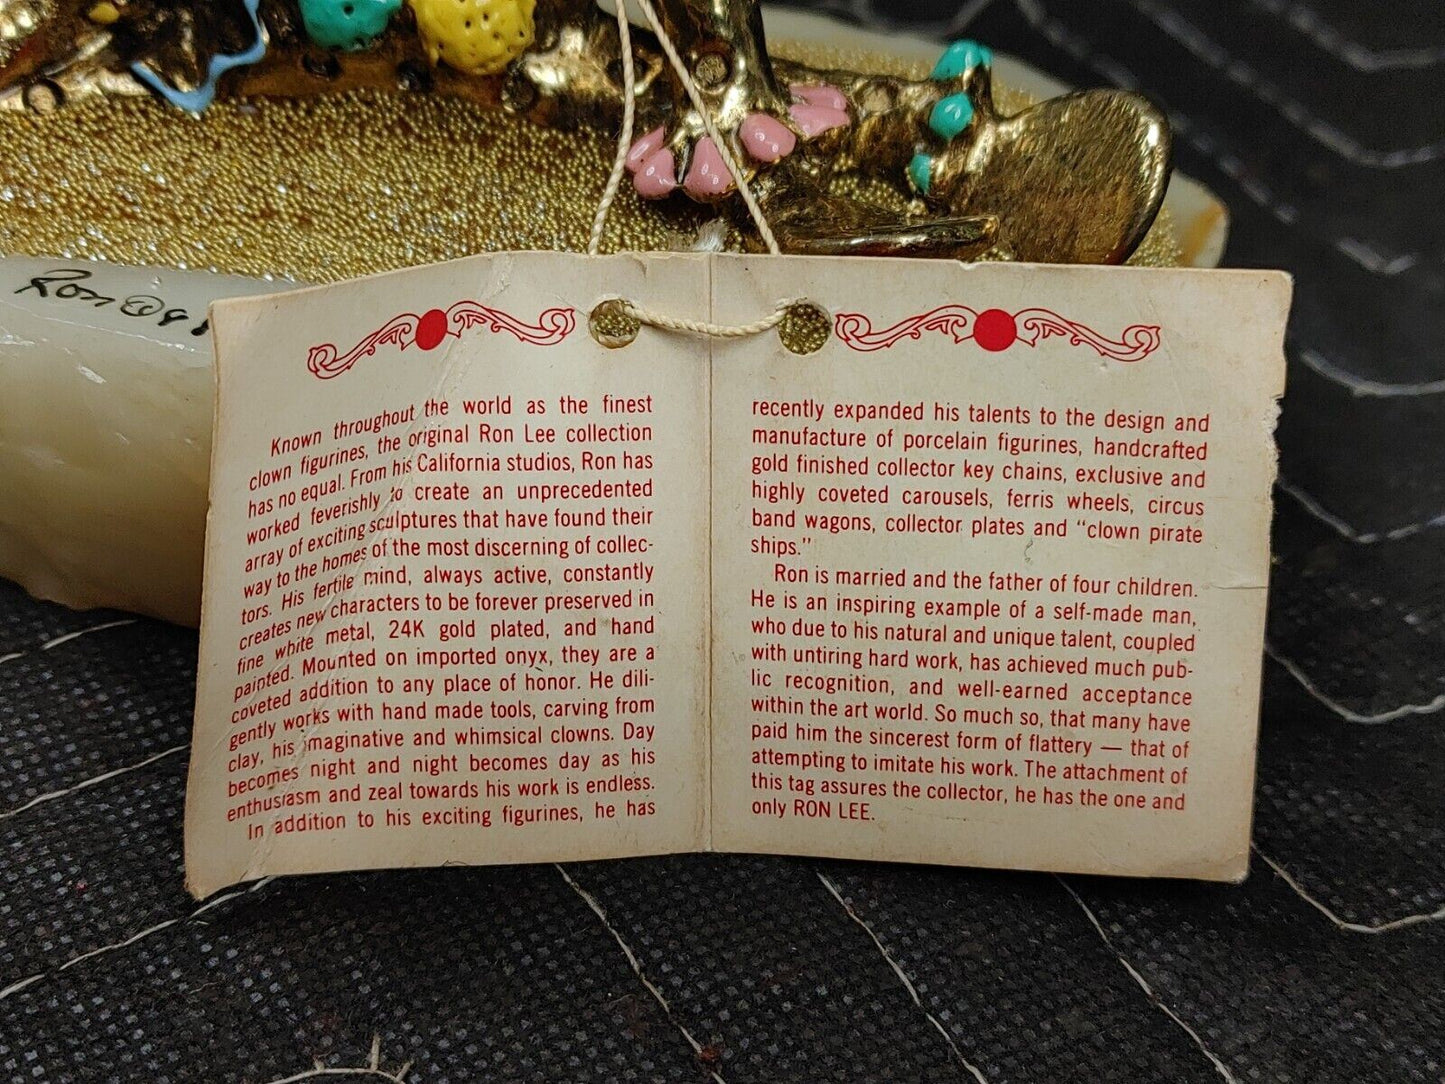 Ron © 9
Known throughout the world as the finest
clown figurines, the original Ron Lee collection
has no equal. From his California studios, Ron has
worked feverishly to create an unprecedented
array of exciting sculptures that have found their
way to the homes of the most discerning of collec-
tors. His fertile mind, always active, constantly
creates new characters to be forever preserved in
fine white metal, 24K gold plated, and hand
painted. Mounted on imported onyx, they are a
coveted addition to any place of honor. He dili-
gently works with hand made tools, carving from
clay, his imaginative and whimsical clowns. Day
becomes night and night becomes day as his
enthusiasm and zeal towards his work is endless.
In addition to his exciting figurines, he has
recently expanded his talents to the design and
manufacture of porcelain figurines, handcrafted
gold finished collector key chains, exclusive and
highly coveted carousels, ferris wheels, circus
band wagons, collector plates and “clown pirate
ships.”
Ron is married and the father of four children.
He is an inspiring example of a self-made man,
who due to his natural and unique talent, coupled
with untiring hard work, has achieved much pub-
lic recognition, and well-earned acceptance
within the art world. So much so, that many have
paid him the sincerest form of flattery — that of
attempting to imitate his work. The attachment of
this tag assures the collector, he has the one and
only RON LEE.